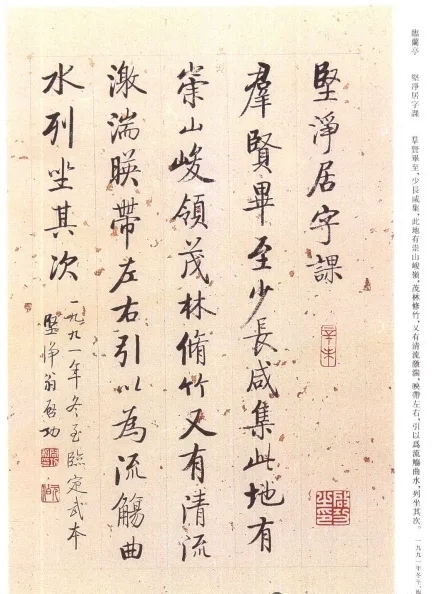 臨蘭亭　堅淨居字課　羣賢畢至，少長咸集，此地有崇山峻嶺，茂林修竹，又有清流激湍，映帶左右，引以爲流觴曲水，列坐其次。一九九一年冬至，
堅淨居字課
羣賢畢至少長咸集此地有
崇山峻領茂林脩竹又有清流
激湍暎帶左右引以為流觴曲
水列坐其次
一九九一年冬至臨定武本
堅淨翁啟功
辛未